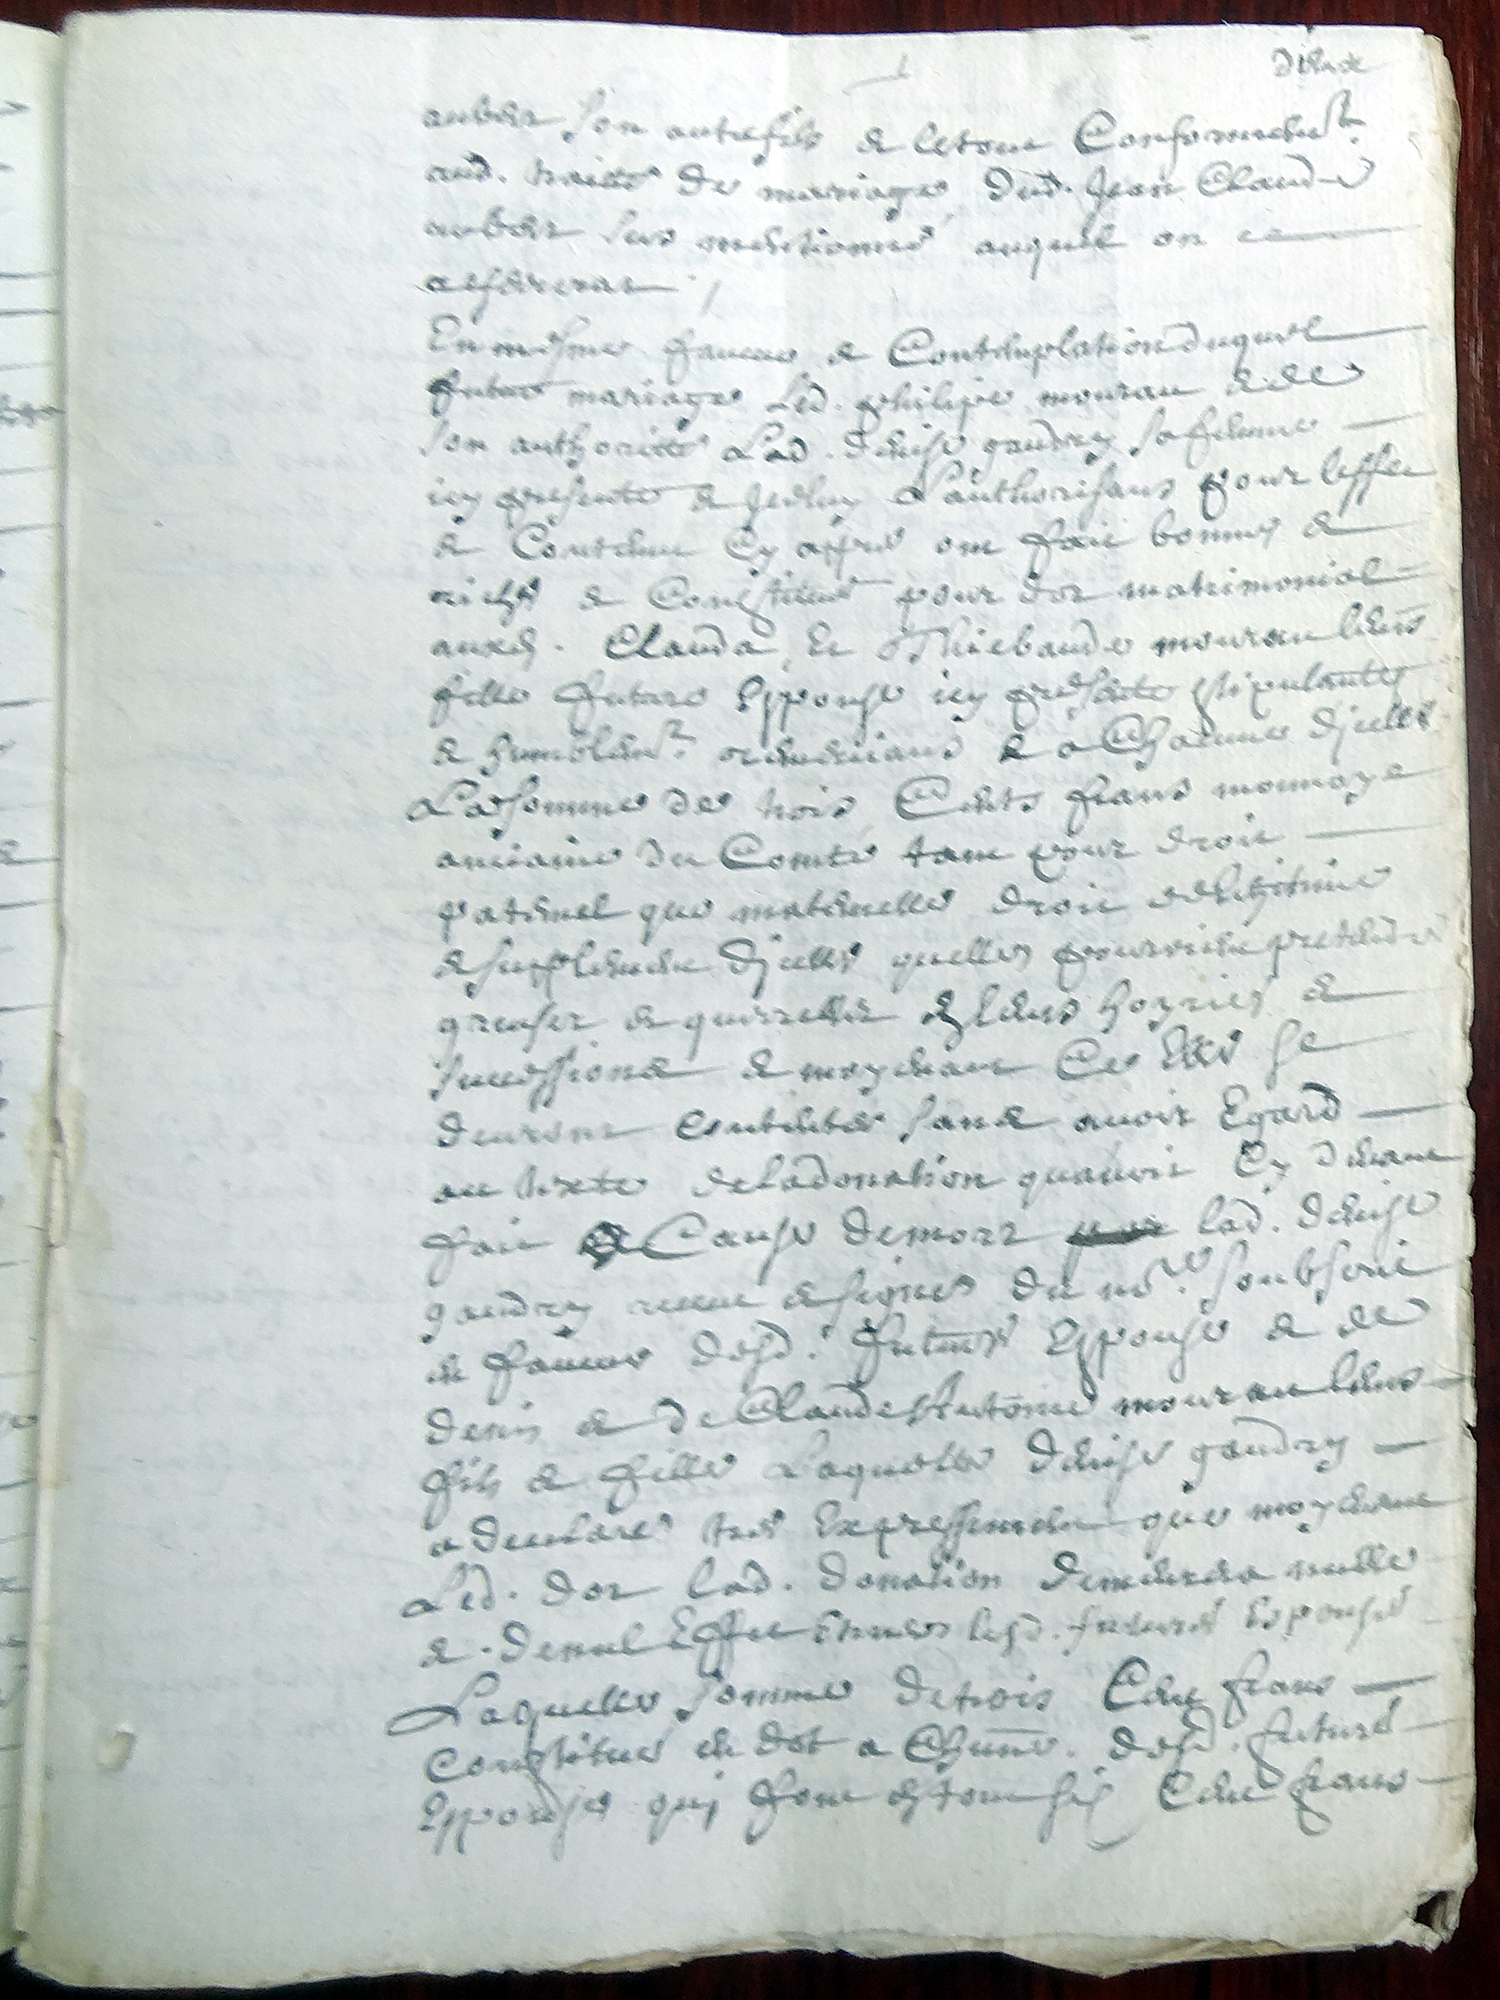 auber son autre fils & le tout Conformemt.
aud. traitté de mariage dud. Jean Claude
auber sus mentionné auquel on ce
refererat /
En mesme faveur & Contemplation duquel
futur mariage Led. philipe mourau & de
son authoritté Lad. denise gaudry sa femme
icy presente & Jcelluy L'authorisant pour leffec
& Contenu Cy apres ont fait bonnes &
riches & Constitué pour dot matrimonial
auxd. Clauda Et Thiebaude mourau leurs
fille future Espouse icy presente stipulantes
& humblemt. remerciant & a Chacune d'jcelles
La somme de trois Cents frans monnoye
anciaine du Comté tant pour droit
paternel que maternelle droit de legitime
& supplement d'jcelles quelles pourroient pretendre
& quereller es leurs hoyries &
successions & moyenant Ce Elles se
deuront contenter sans avoir Egard
au texte de la donation quavoit Cy devant
fait a Cause de mort lad. denise
gaudry receue & signee du nore. soubscrit
en faveur desd. futures Espouse & de
denis & de Claude Antoine mourau leurs
fils & fille Laquelle denise gaudry
a declaré tres Expressement que moyenant
Led. dot lad. donation demeurera nulle
& de nul Effet Envers lesd. futures Espouses
Laquelle somme de trois Cent frans
constitué en dot a Chune. desd. futures
Espouses qui font en tout six Cent frans